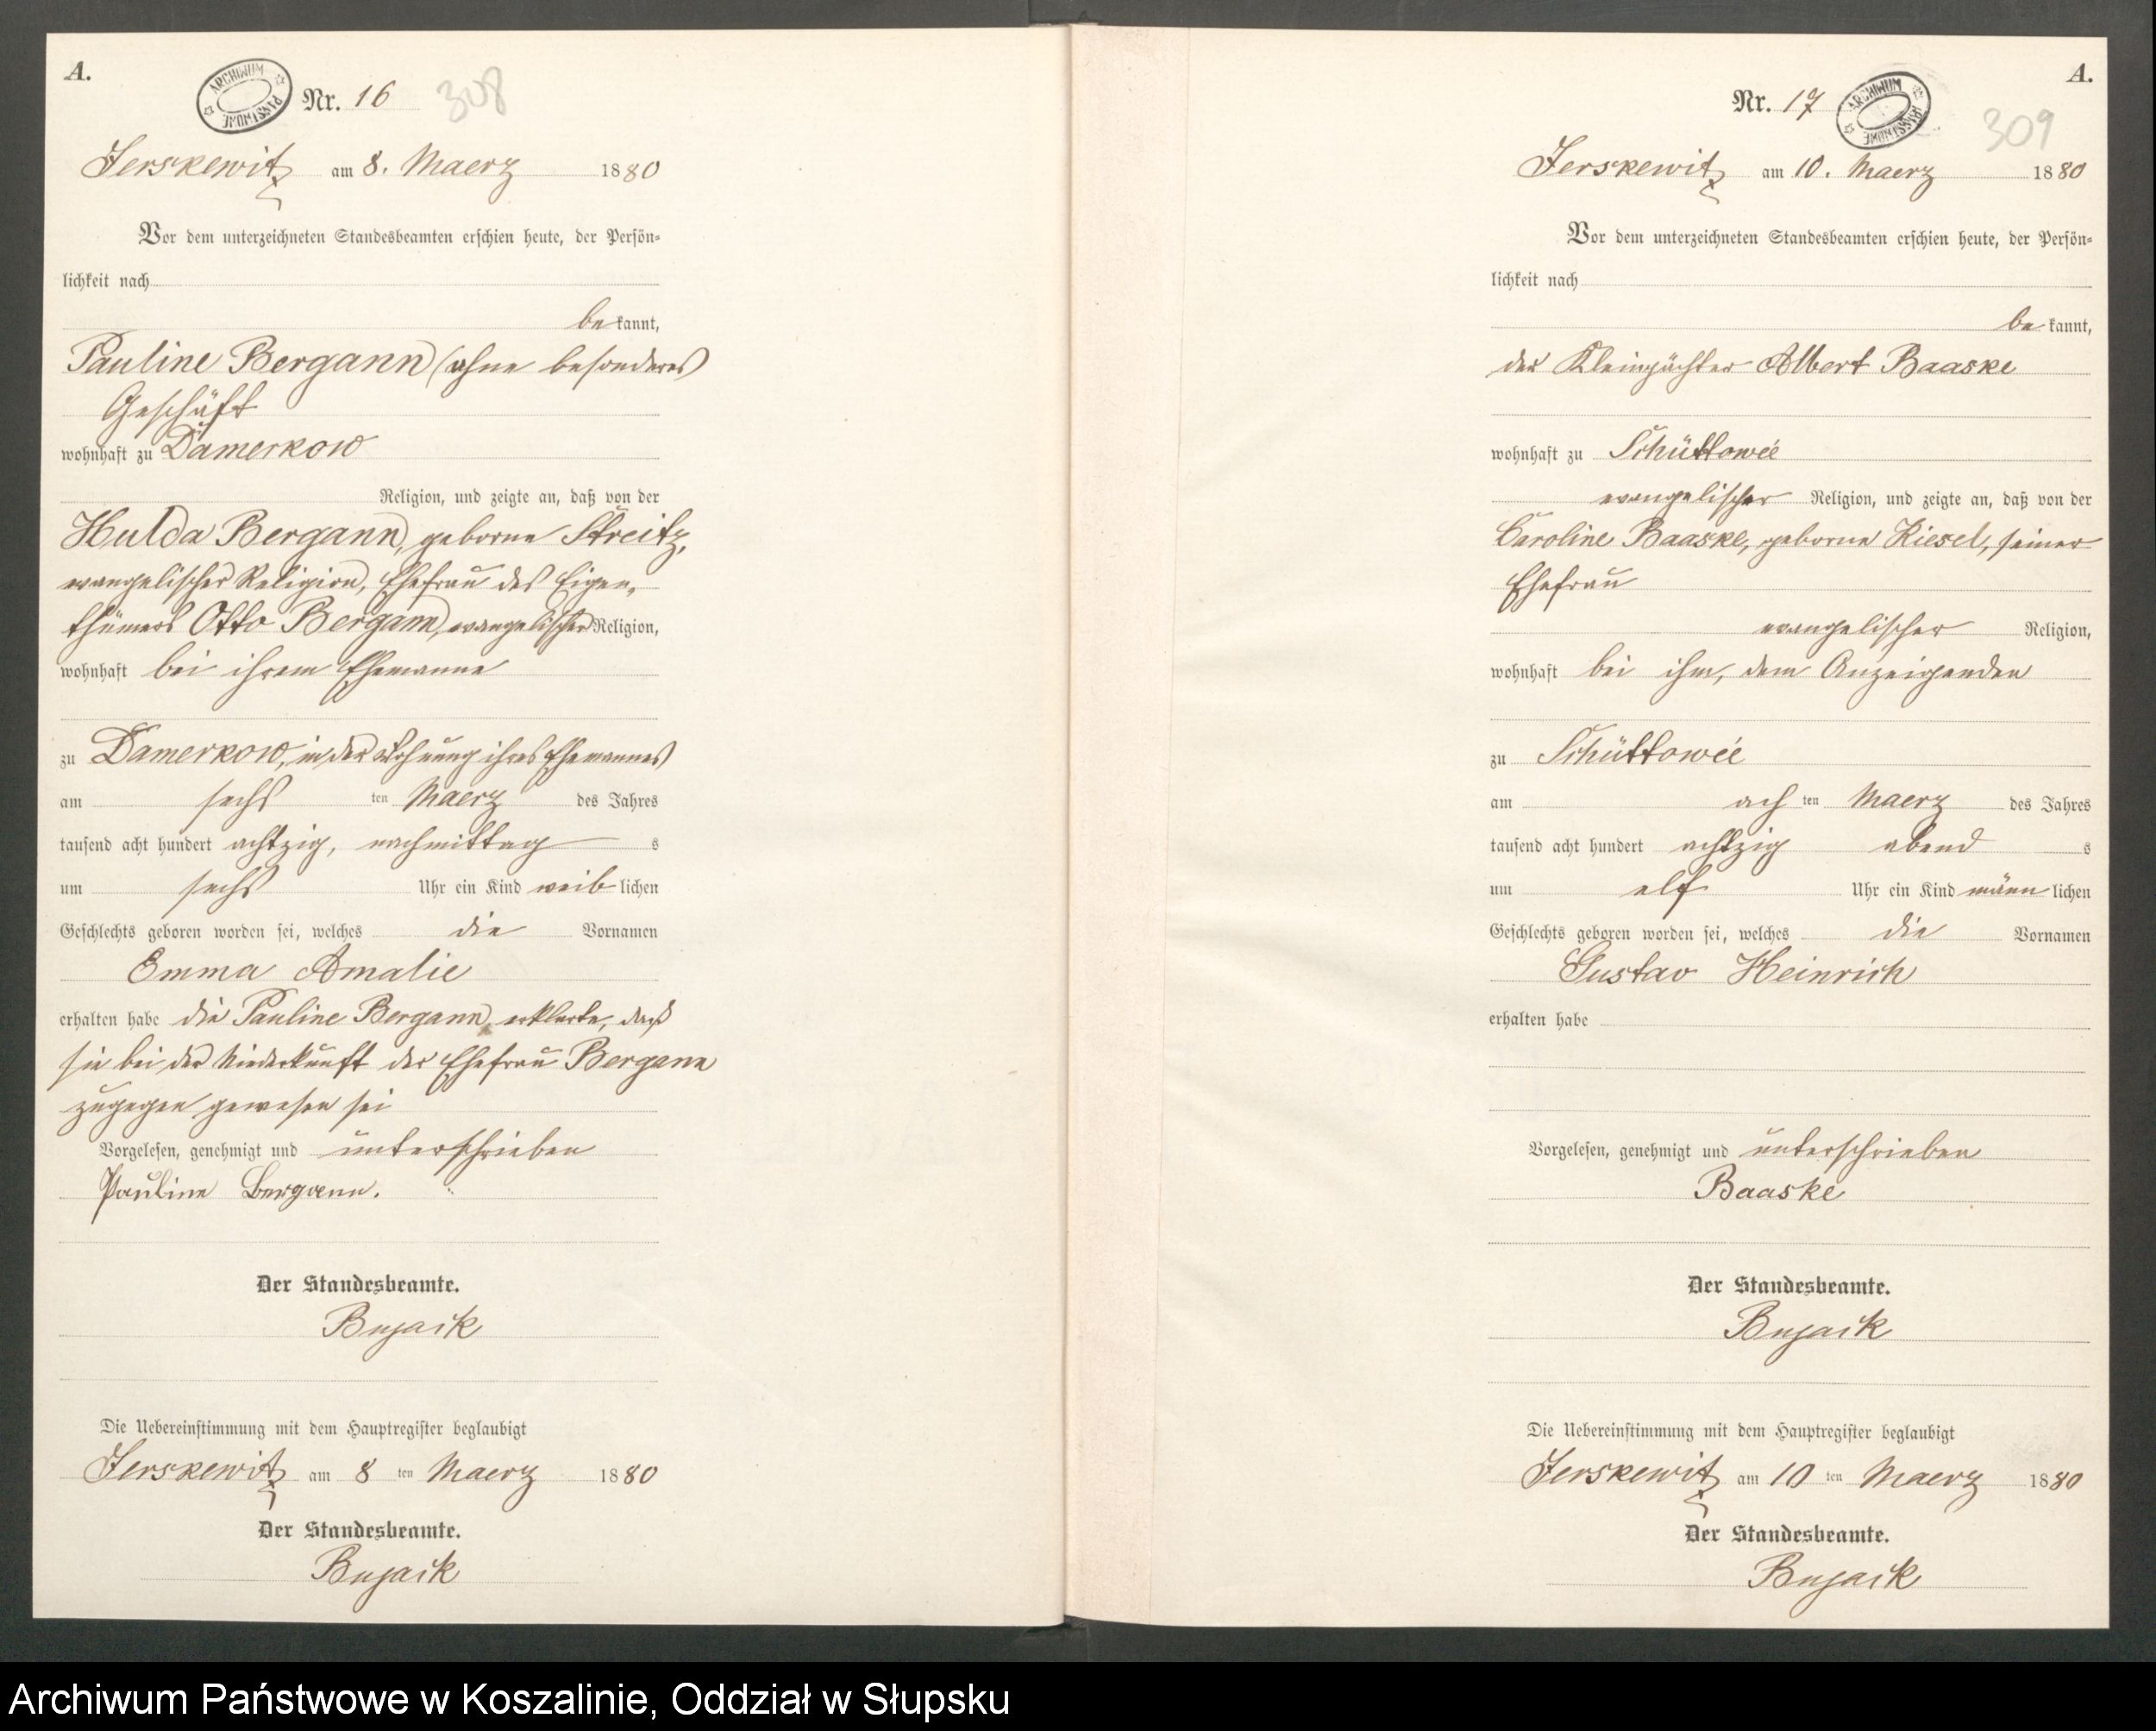 A.
ARCHIWUM PAŃSTWOWE
Nr. 16
308
Jerskewitz am 8. Maerz 1880
Vor dem unterzeichneten Standesbeamten erschien heute, der Persön-
lichkeit nach
be kannt,
Pauline Bergann (ohne besonderes
Geschäft
wohnhaft zu Damerkow
Religion, und zeigte an, daß von der
Hulda Bergann, geborne Streitz,
evangelischer Religion, Ehefrau des Eigen-
thümers Otto Bergann, evangelischer Religion,
wohnhaft bei ihrem Ehemanne
zu Damerkow, in der Wohnung ihres Ehemannes
am sechs ten Maerz des Jahres
tausend acht hundert achtzig, nachmittag s
um sechs Uhr ein Kind weib lichen
Geschlechts geboren worden sei, welches die Vornamen
Emma Amalie
erhalten habe die Pauline Bergann erklarte, daß
sie bei der Niederkunft der Ehefrau Bergann
zugegen gewesen sei
Vorgelesen, genehmigt und unterschrieben
Pauline Bergann.
Der Standesbeamte.
Bujack
Die Uebereinstimmung mit dem Hauptregister beglaubigt
Jerskewitz am 8 ten Maerz 1880
Der Standesbeamte.
Bujack
A.
Nr. 17
ARCHIWUM PAŃSTWOWE
309
Jerskewitz am 10. Maerz 1880
Vor dem unterzeichneten Standesbeamten erschien heute, der Persön-
lichkeit nach
be kannt,
der Kleinpächter Albert Baaske
wohnhaft zu Schüttoweé
evangelischer Religion, und zeigte an, daß von der
Caroline Baaske, geborne Kiesel, seiner
Ehefrau
evangelischer Religion,
wohnhaft bei ihm, dem Anzeigenden
zu Schüttoweé
am ach ten Maerz des Jahres
tausend acht hundert achtzig abend s
um elf Uhr ein Kind männ lichen
Geschlechts geboren worden sei, welches die Vornamen
Gustav Heinrich
erhalten habe
Vorgelesen, genehmigt und unterschrieben
Baaske
Der Standesbeamte.
Bujack
Die Uebereinstimmung mit dem Hauptregister beglaubigt
Jerskewitz am 10 ten Maerz 1880
Der Standesbeamte.
Bujack
Archiwum Państwowe w Koszalinie, Oddział w Słupsku